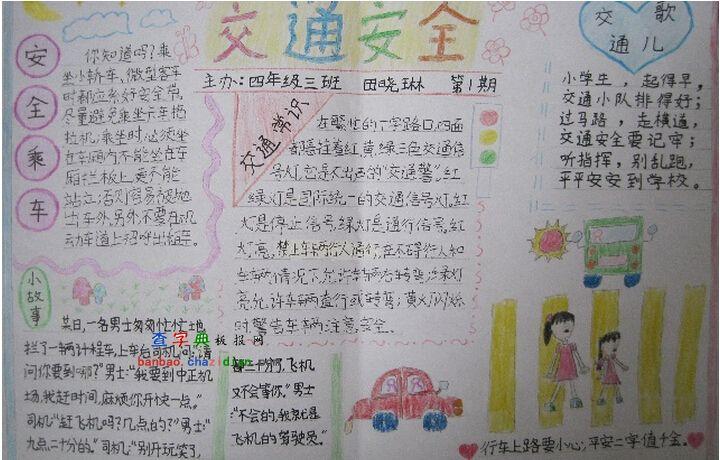 交通安全
主办：四年级三班 田晓琳 第1期
安全乘车
你知道吗？乘
坐小轿车、微型客车
时都应系好安全带，
尽量避免乘坐卡车拖
拉机，乘坐时，必须坐
在车厢内不能坐在车
厢栏板上，更不能
站立，否则容易被抛
出车外，另外不要在机
动车道上招呼出租车。
交通常识
在繁忙的十字路口，四面
都悬挂着红、黄、绿三色交通信
号灯，它是不出声的“交通警”。红
绿灯是国际统一的交通信号灯。红
灯是停止信号，绿灯是通行信号。红
灯亮，禁止车辆行人通行，在不碍行人和
车辆情况下，允许车辆右转弯；绿灯
亮，允许车辆直行或转弯；黄灯闪烁
时，警告车辆，注意安全。
交通儿歌
小学生，起得早，
交通小队排得好；
过马路，走横道，
交通安全要记牢；
听指挥，别乱跑，
平平安安到学校。
小故事
某日，一名男士匆匆忙忙地
拦了一辆计程车，上车后司机问：“请
问你要到哪？”男士：“我要到中正机
场，我赶时间，麻烦你开快一点。”
司机：“赶飞机吗？几点的？”男士：“
九点二十分的。”司机：“别开玩笑了，
都三十分了，飞机
又不会等你。”男士
：“不会的，我就是
飞机的驾驶员。”
查字典 板报网
banbao.chazidian
行车上路要小心，平安二字值千金。